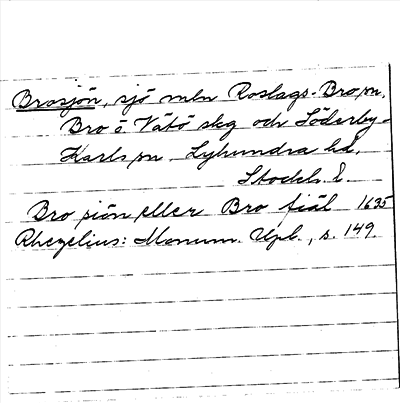 Brosjön, sjö mln Roslags-Bro sn,
Bro o Vätö skg och Söderby-
Karls sn. Lyhundra hd,
Stockh. l.
Bro siön eller Bro fiäl 1635
Rhezelius: Monum. Upl., s. 149.